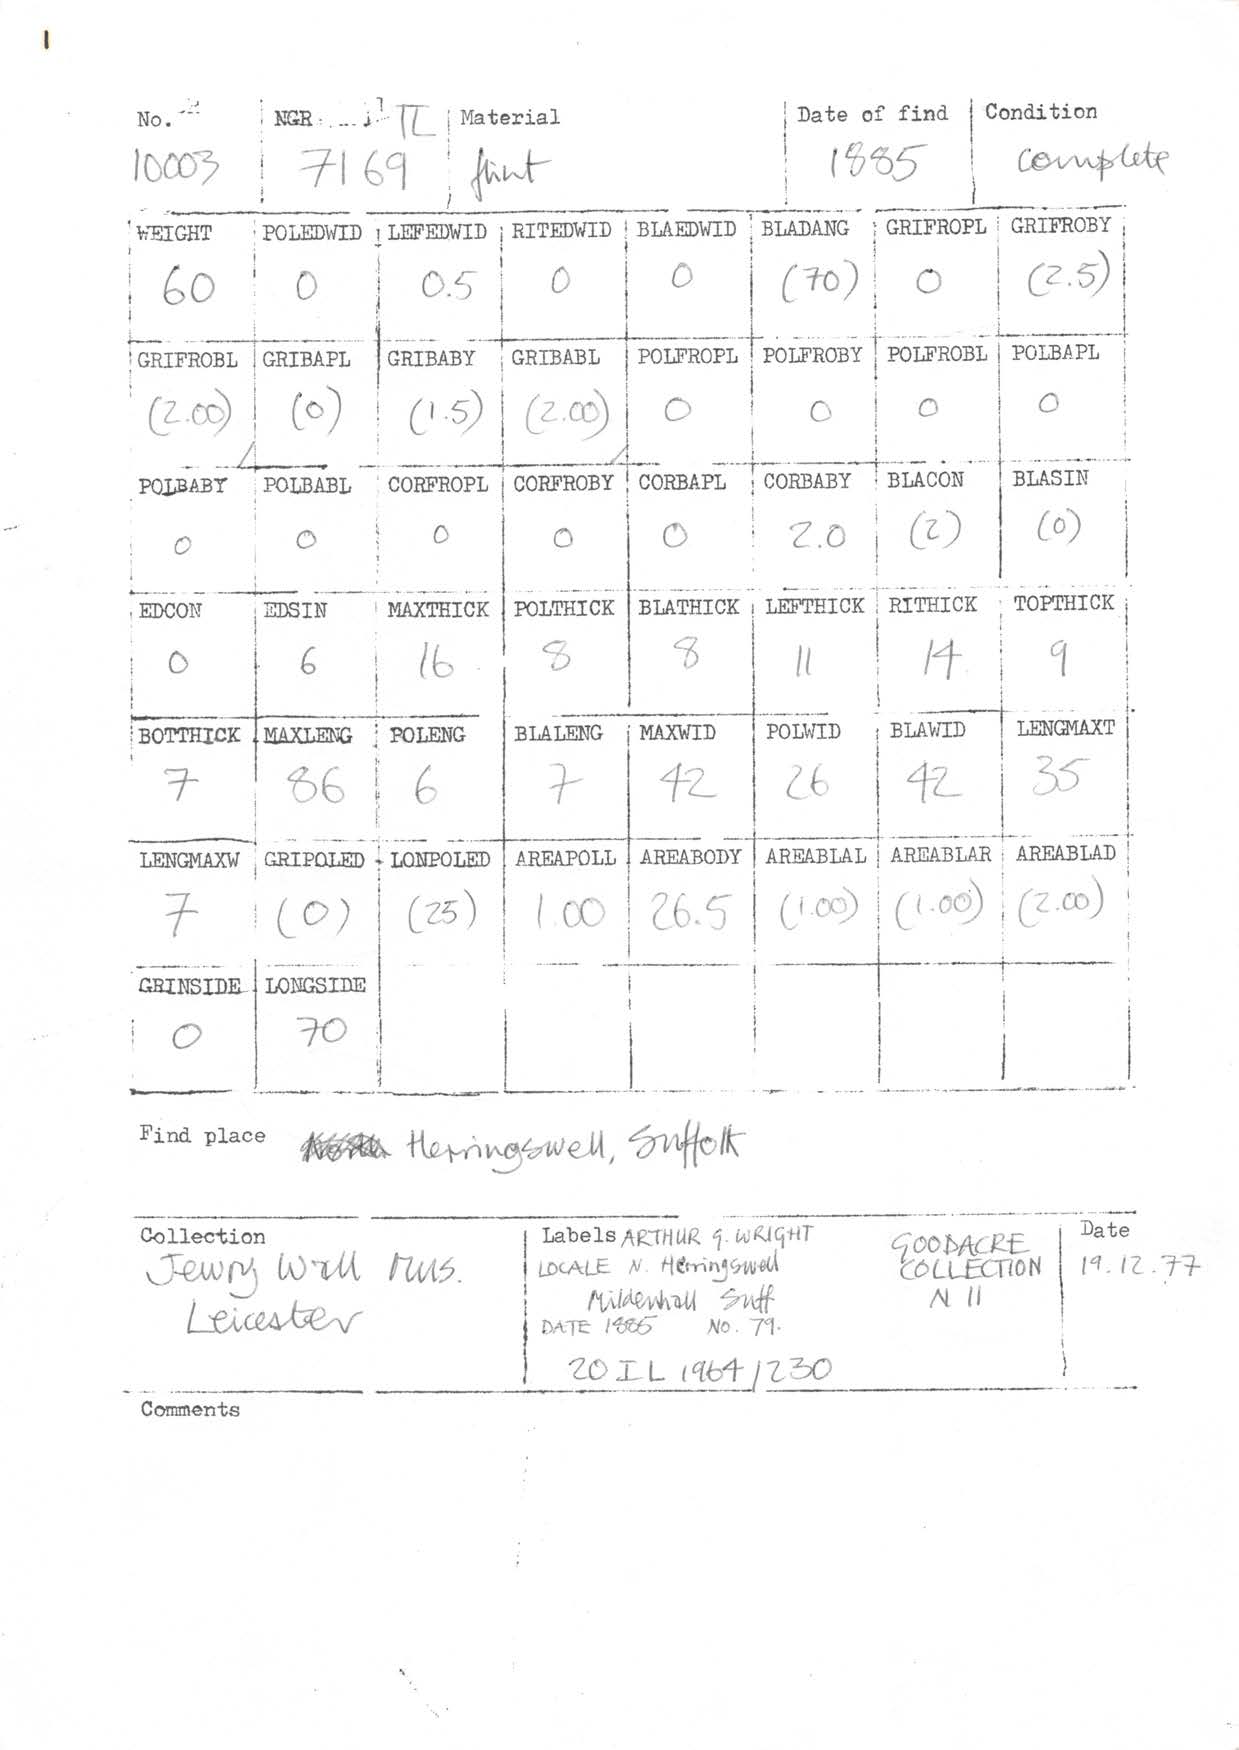 1
No. NGR TL Material Date of find Condition
10003 7169 flint 1885 complete
WEIGHT POLEDWID LEFEDWID RITEDWID BLAEDWID BLADANG GRIFROPL GRIFROBY
60 0 0.5 0 0 (70) 0 (2.5)
GRIFROBL GRIBAPL GRIBABY GRIBABL POLFROPL POLFROBY POLFROBL POLBAPL
(2.00) (0) (1.5) (2.00) 0 0 0 0
POLBABY POLBABL CORFROPL CORFROBY CORBAPL CORBABY BLACON BLASIN
0 0 0 0 0 2.0 (2) (0)
EDCON EDSIN MAXTHICK POLTHICK BLATHICK LEFTHICK RITHICK TOPTHICK
0 6 16 8 8 11 14 9
BOTTHICK MAXLENG POLENG BLALENG MAXWID POLWID BLAWID LENGMAXT
7 86 6 7 42 26 42 35
LENGMAXW GRIPOLED LONPOLED AREAPOLL AREABODY AREABLAL AREABLAR AREABLAD
7 (0) (25) 1.00 26.5 (1.00) (1.00) (2.00)
GRINSIDE LONGSIDE
0 70
Find place Herringswell, Suffolk
Collection Labels ARTHUR G. WRIGHT GOODACRE Date
Jewry Wall Mus. LOCALE N. Herringswell COLLECTION 19.12.77
Leicester Mildenhall Suff N 11
DATE 1885 NO. 79.
20 IL 1964/230
Comments